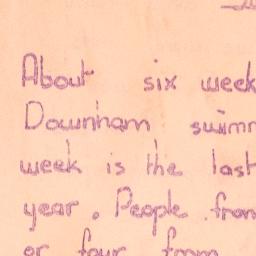 About six week
Downham swimm
week is the last
year. People from
or four from